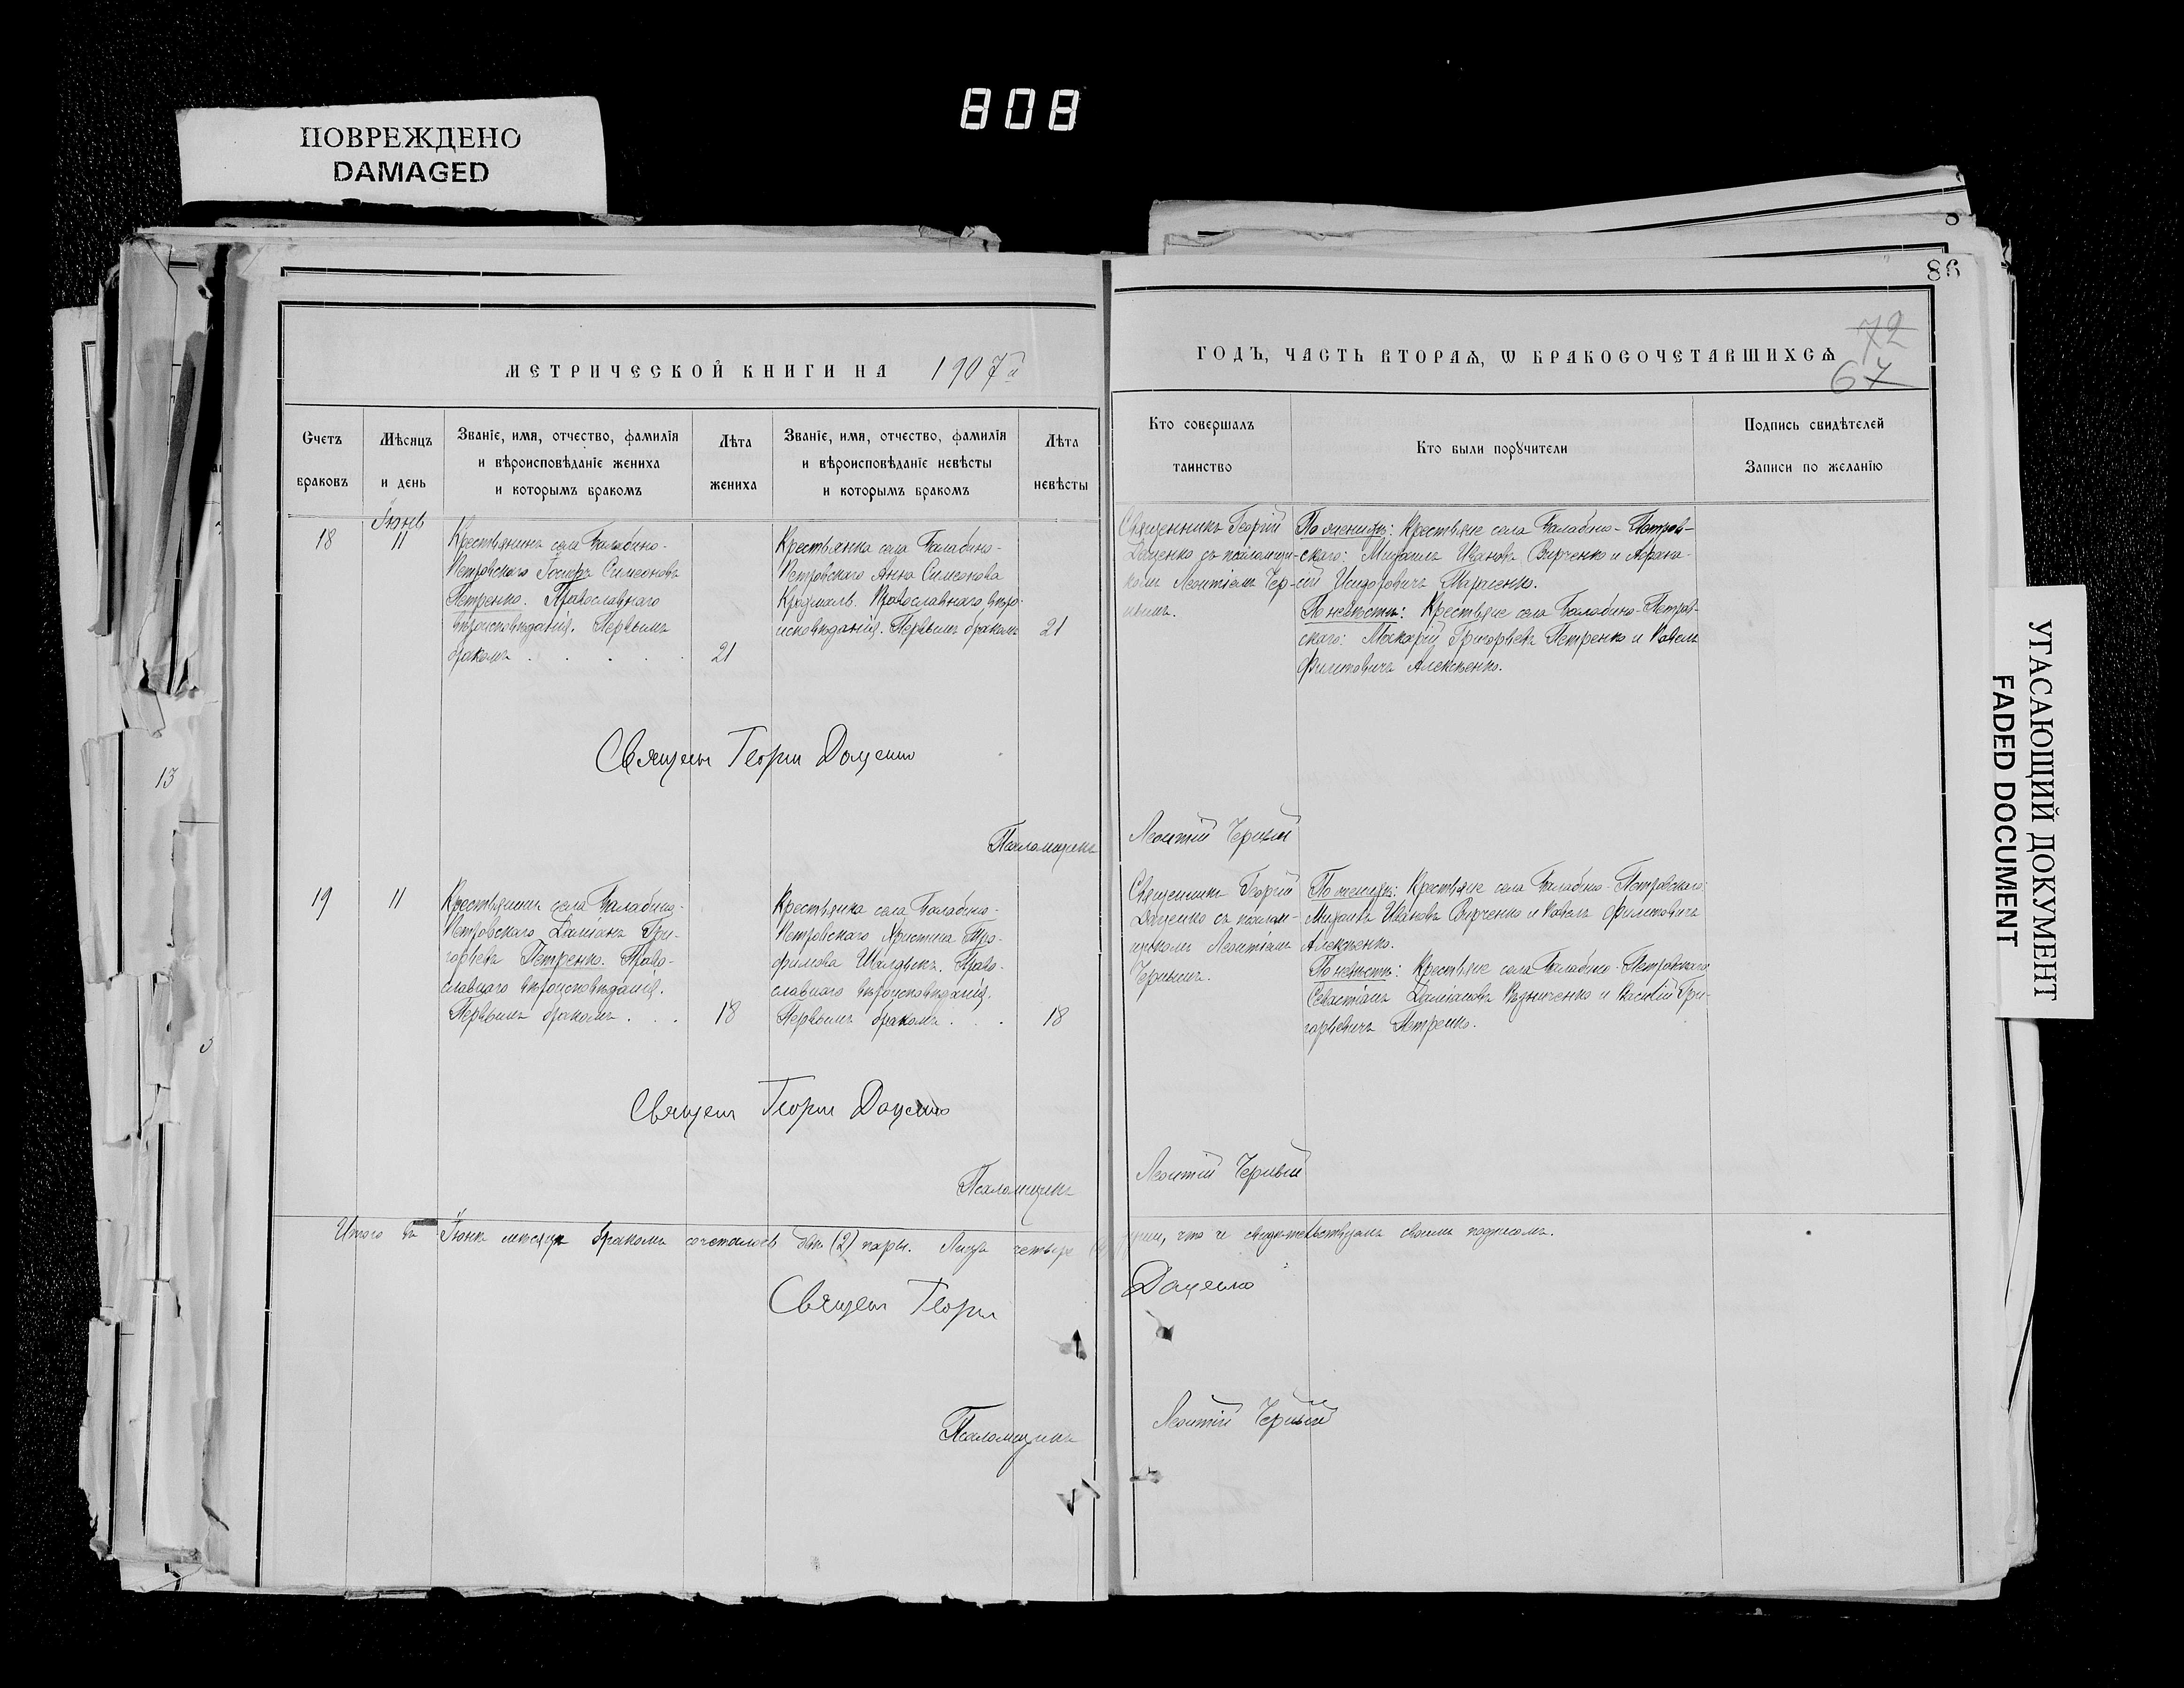 808
ПОВРЕЖДЕНО
DAMAGED
86
72
67
МЕТРИЧЕСКОЙ КНИГИ НА 1907й
ГОДЪ, ЧАСТЬ ВТОРАѦ, Ѡ БРАКОСОЧЕТАВШИХСѦ
Счетъ
браковъ
Мѣсяцъ
и день
Званіе, имя, отчество, фамилія
и вѣроисповѣданіе жениха
и которымъ бракомъ
Лѣта
жениха
Званіе, имя, отчество, фамилія
и вѣроисповѣданіе невѣсты
и которымъ бракомъ
Лѣта
невѣсты
Кто совершалъ
таинство
Кто были порꙋчители
Подпись свидѣтелей
Записи по желанію
18
Іюнь
11
Крестьянинъ села Балабино-
Петровскаго Симеоновъ
Петренко. Православнаго
вѣроисповѣданія. Первымъ
бракомъ . . . . .
21
Крестьянка села Балабино-
Петровскаго Анна Симеонова
Крохмаль. Православнаго вѣро-
исповѣданія. Первымъ бракомъ
21
Священникъ Георгій
Даценко съ псаломщи-
комъ Леонтіемъ Чер-
нымъ.
По женихѣ: Крестьяне села Балабино-Петров-
скаго: Михаилъ Ивановъ Вирченко и Афана-
сій Исидоровичъ Марченко.
По невѣстѣ: Крестьяне села Балабино-Петров-
скаго: Макарій Григорьевъ Петренко и Павелъ
Филиповичъ Алексѣенко.
Священ Георгій Даценко
Псаломщикъ Леонтій Черный
19
11
Крестьянинъ села Балабино-
Петровскаго Даміанъ Гри-
горьевъ Петренко. Право-
славнаго вѣроисповѣданія.
Первымъ бракомъ . . .
18
Крестьянка села Балабино-
Петровскаго Христина Тро-
фимова Право-
славнаго вѣроисповѣданія.
Первымъ бракомъ . . .
18
Священникъ Георгій
Даценко съ псалом-
щикомъ Леонтіемъ
Чернымъ.
По женихѣ: Крестьяне села Балабино-Петровскаго:
Михаилъ Ивановъ Вирченко и Павелъ Филиповичъ
Алексѣенко.
По невѣстѣ: Крестьяне села Балабино-Петровскаго
Севастіанъ Даміановъ и Василій Гри-
горьевичъ Петренко.
Священ Георгій Даценко
Псаломщикъ Леонтій Черный
Итого въ Іюнѣ мѣсяцѣ бракомъ сочеталось двѣ (2) пары. Лица четыре что и свидѣтельствуемъ своимъ подписомъ.
Священ Георгій Даценко
Псаломщикъ Леонтій Черный
13
УГАСАЮЩИЙ ДОКУМЕНТ
FADED DOCUMENT